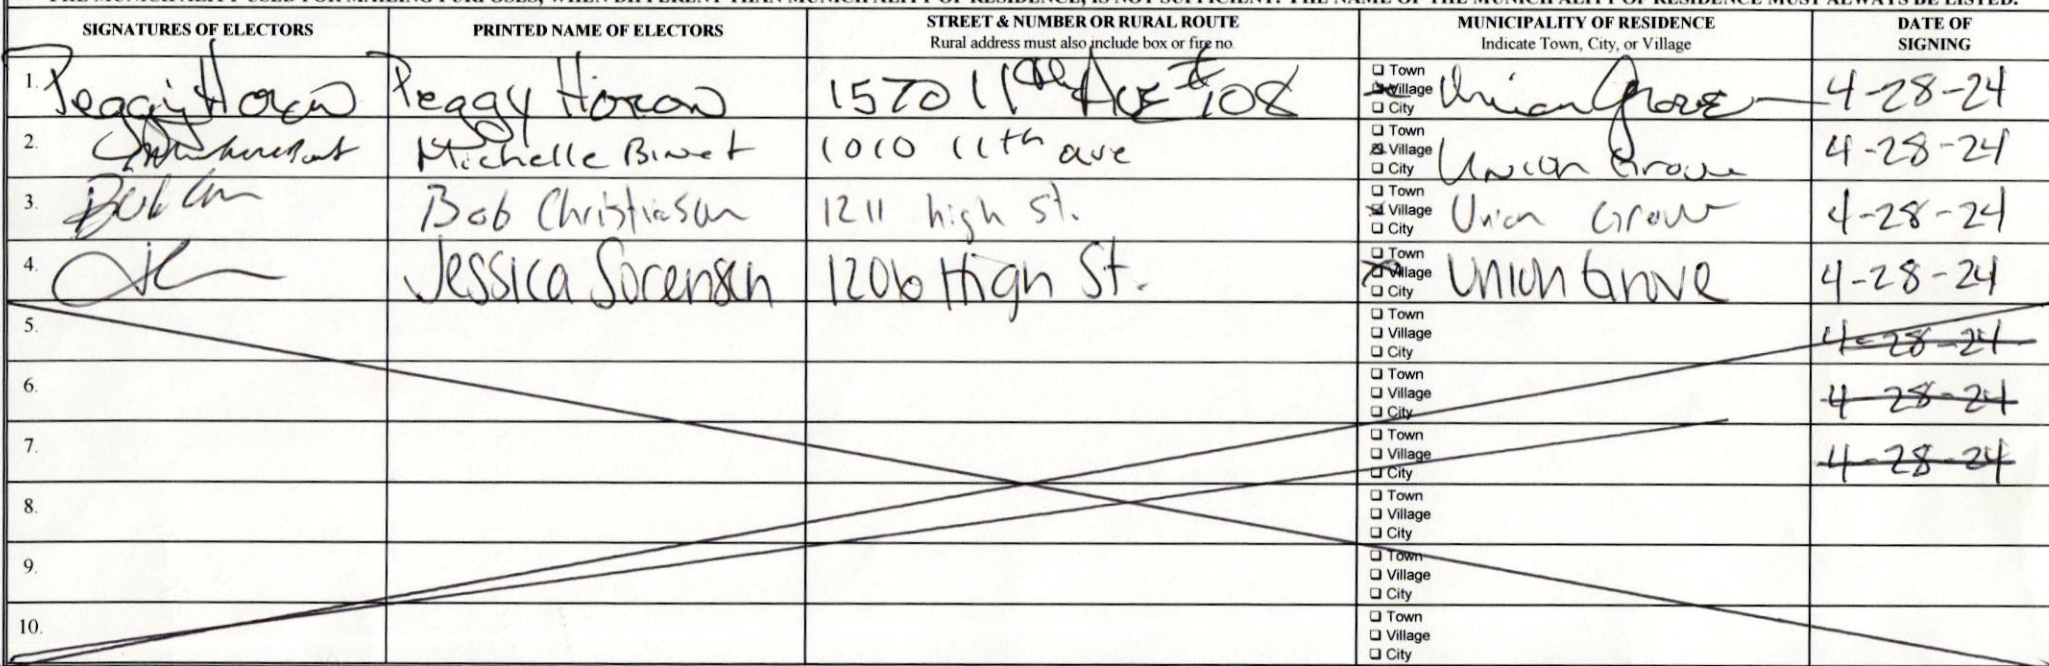 SIGNATURES OF ELECTORS PRINTED NAME OF ELECTORS STREET & NUMBER OR RURAL ROUTE Rural address must also include box or fire no. MUNICIPALITY OF RESIDENCE Indicate Town, City, or Village DATE OF SIGNING
1. Peggy Horan Peggy Horan 1570 11th Ave #108 Town Village City Union Grove 4-28-24
2. Michelle 1010 11th ave Town Village City Union Grove 4-28-24
3. Bob Christianson 1211 high st. Town Village City Union Grove 4-28-24
4. Jessica Sorensen 1206 High St. Town Village City Union Grove 4-28-24
5. Town Village City 4-28-24
6. Town Village City 4-28-24
7. Town Village City 4-28-24
8. Town Village City
9. Town Village City
10. Town Village City